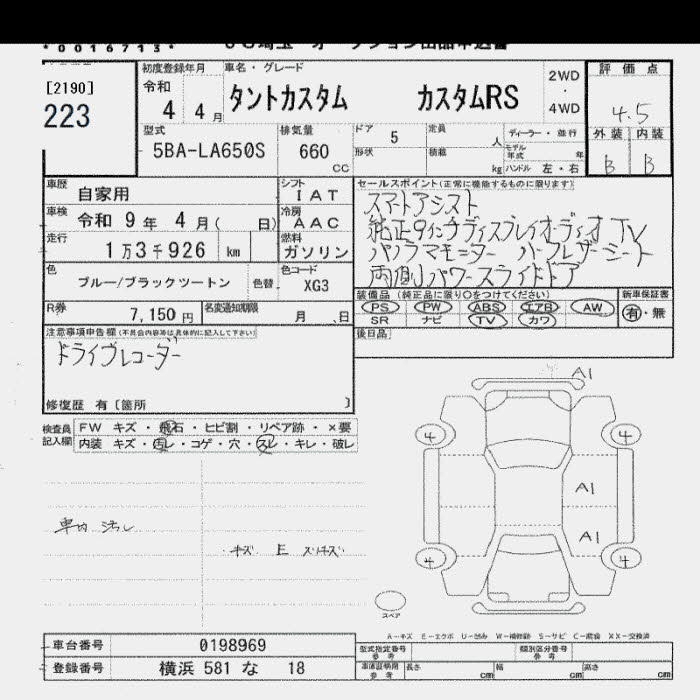 *0016713*
[2190]
223
初度登録年月
令和
4 4月
車名・グレード
タントカスタム カスタムRS
2WD
・
4WD
評価点
4.5
外装 内装
B B
型式
5BA-LA650S
排気量
660
CC
ドア
5
定員
人
形状
積載
kg
ディーラー・並行
モデル年式
年
ハンドル 左・右
車歴
自家用
シフト
IAT
車検
令和 9年 4月(日)
冷房
AAC
走行
1万3千926 km
燃料
ガソリン
色
ブルー/ブラックツートン
色替
色コード
XG3
R券
7,150円
名変通知期限
月 日
セールスポイント(正常に機能するものに限ります)
スマートアシスト
純正9インチディスプレイオーディオ TV
パノラマモニター ハーフレザーシート
両側パワースライドドア
装備品(純正品に限り○をつけてください)
PS PW ABS エアB AW
SR ナビ TV カワ
新車保証書
有・無
後日品
注意事項申告欄(不具合内容等は具体的に記入して下さい)
ドライブレコーダー
修復歴 有〔箇所 〕
検査員
記入欄
FW キズ・飛石・ヒビ割・リペア跡・×要
内装 キズ・汚レ・コゲ・穴・スレ・キレ・破レ
車内 汚レ
キズ E スリキズ
A1
4 4
A1
A1
4 4
スペア
A-キズ E-エクボ U-凹み W-補修跡 S-サビ C-腐食 XX-交換済
車台番号
0198969
登録番号
横浜 581 な 18
型式指定番号
参考
類別区分番号
参考
車庫証明用
参考
長さ cm
幅 cm
高さ cm